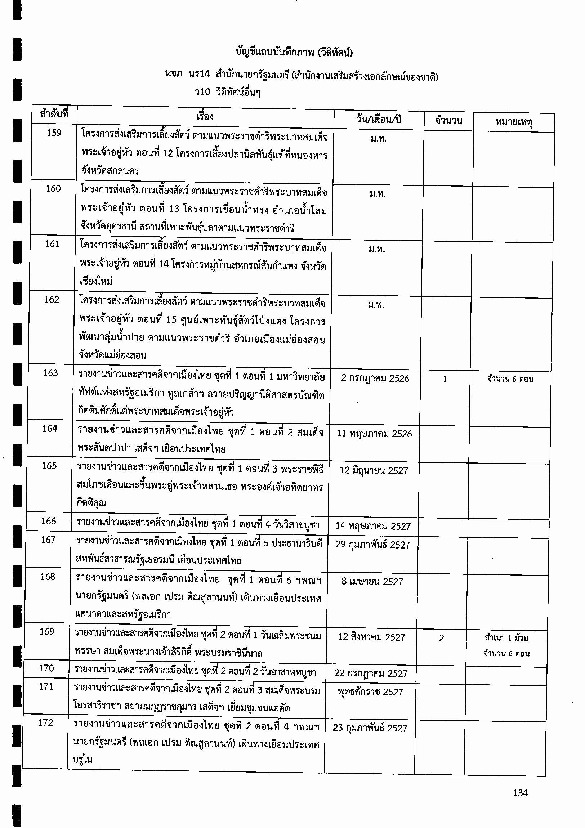 บัญชีแถบบันทึกภาพ (วีดิทัศน์)
หจภ นร14 สำนักนายกรัฐมนตรี (สำนักงานเสริมสร้างเอกลักษณ์ของชาติ)
ว10 วีดิทัศน์อื่นๆ
ลำดับที่ เรื่อง วัน/เดือน/ปี จำนวน หมายเหตุ
159 โครงการส่งเสริมการเลี้ยงสัตว์ ตามแนวพระราชดำริพระบาทสมเด็จ ม.ท.
พระเจ้าอยู่หัว ตอนที่ 12 โครงการเลี้ยงปลานิลพันธุ์แท้ที่หนองหาร
จังหวัดสกลนคร
160 โครงการส่งเสริมการเลี้ยงสัตว์ ตามแนวพระราชดำริพระบาทสมเด็จ ม.ท.
พระเจ้าอยู่หัว ตอนที่ 13 โครงการเขื่อนน้ำทรง อำเภอน้ำโสม
จังหวัดอุดรธานี สถานที่เพาะพันธุ์ปลาตามแนวพระราชดำริ
161 โครงการส่งเสริมการเลี้ยงสัตว์ ตามแนวพระราชดำริพระบาทสมเด็จ ม.ท.
พระเจ้าอยู่หัว ตอนที่ 14 โครงการหมู่บ้านสหกรณ์สันกำแพง จังหวัด
เชียงใหม่
162 โครงการส่งเสริมการเลี้ยงสัตว์ ตามแนวพระราชดำริพระบาทสมเด็จ ม.ท.
พระเจ้าอยู่หัว ตอนที่ 15 ศูนย์เพาะพันธุ์สัตว์โป่งแดง โครงการ
พัฒนาลุ่มน้ำปาย ตามแนวพระราชดำริ อำเภอเมืองแม่ฮ่องสอน
จังหวัดแม่ฮ่องสอน
163 รายงานข่าวและสารคดีจากเมืองไทย ชุดที่ 1 ตอนที่ 1 มหาวิทยาลัย 2 กรกฎาคม 2526 1 จำนวน 6 ตอน
ทัฟต์แห่งสหรัฐอเมริกา ทูลเกล้าฯ ถวายปริญญานิติศาสตรบัณฑิต
กิตติมศักดิ์แด่พระบาทสมเด็จพระเจ้าอยู่หัว
164 รายงานข่าวและสารคดีจากเมืองไทย ชุดที่ 1 ตอนที่ 2 สมเด็จ 11 พฤษภาคม 2526
พระสันตปาปา เสด็จฯ เยือนประเทศไทย
165 รายงานข่าวและสารคดีจากเมืองไทย ชุดที่ 1 ตอนที่ 3 พระราชพิธี 12 มิถุนายน 2527
สมโภชเดือนและขึ้นพระอู่พระเจ้าหลานเธอ พระองค์เจ้าอทิตยาทร
กิตติคุณ
166 รายงานข่าวและสารคดีจากเมืองไทย ชุดที่ 1 ตอนที่ 4 วันวิสาขบูชา 14 พฤษภาคม 2527
167 รายงานข่าวและสารคดีจากเมืองไทย ชุดที่ 1 ตอนที่ 5 ประธานาธิบดี 29 กุมภาพันธ์ 2527
สหพันธ์สาธารณรัฐเยอรมนี เยือนประเทศไทย
168 รายงานข่าวและสารคดีจากเมืองไทย ชุดที่ 1 ตอนที่ 6 ฯพณฯ 8 เมษายน 2527
นายกรัฐมนตรี (พลเอก เปรม ติณสูลานนท์) เดินทางเยือนประเทศ
แคนาดาและสหรัฐอเมริกา
169 รายงานข่าวและสารคดีจากเมืองไทย ชุดที่ 2 ตอนที่ 1 วันเฉลิมพระชนม 12 สิงหาคม 2527 2 สำเนา 1 ม้วน
พรรษา สมเด็จพระนางเจ้าสิริกิติ์ พระบรมราชินีนาถ จำนวน 6 ตอน
170 รายงานข่าวและสารคดีจากเมืองไทย ชุดที่ 2 ตอนที่ 2 วันอาสาฬหบูชา 22 กรกฎาคม 2527
171 รายงานข่าวและสารคดีจากเมืองไทย ชุดที่ 2 ตอนที่ 3 สมเด็จพระบรม พุทธศักราช 2527
โอรสาธิราชฯ สยามมกุฎราชกุมาร เสด็จฯ เยี่ยมชุมชนแออัด
172 รายงานข่าวและสารคดีจากเมืองไทย ชุดที่ 2 ตอนที่ 4 ฯพณฯ 23 กุมภาพันธ์ 2527
นายกรัฐมนตรี (พลเอก เปรม ติณสูลานนท์) เดินทางเยือนประเทศ
บรูไน
134